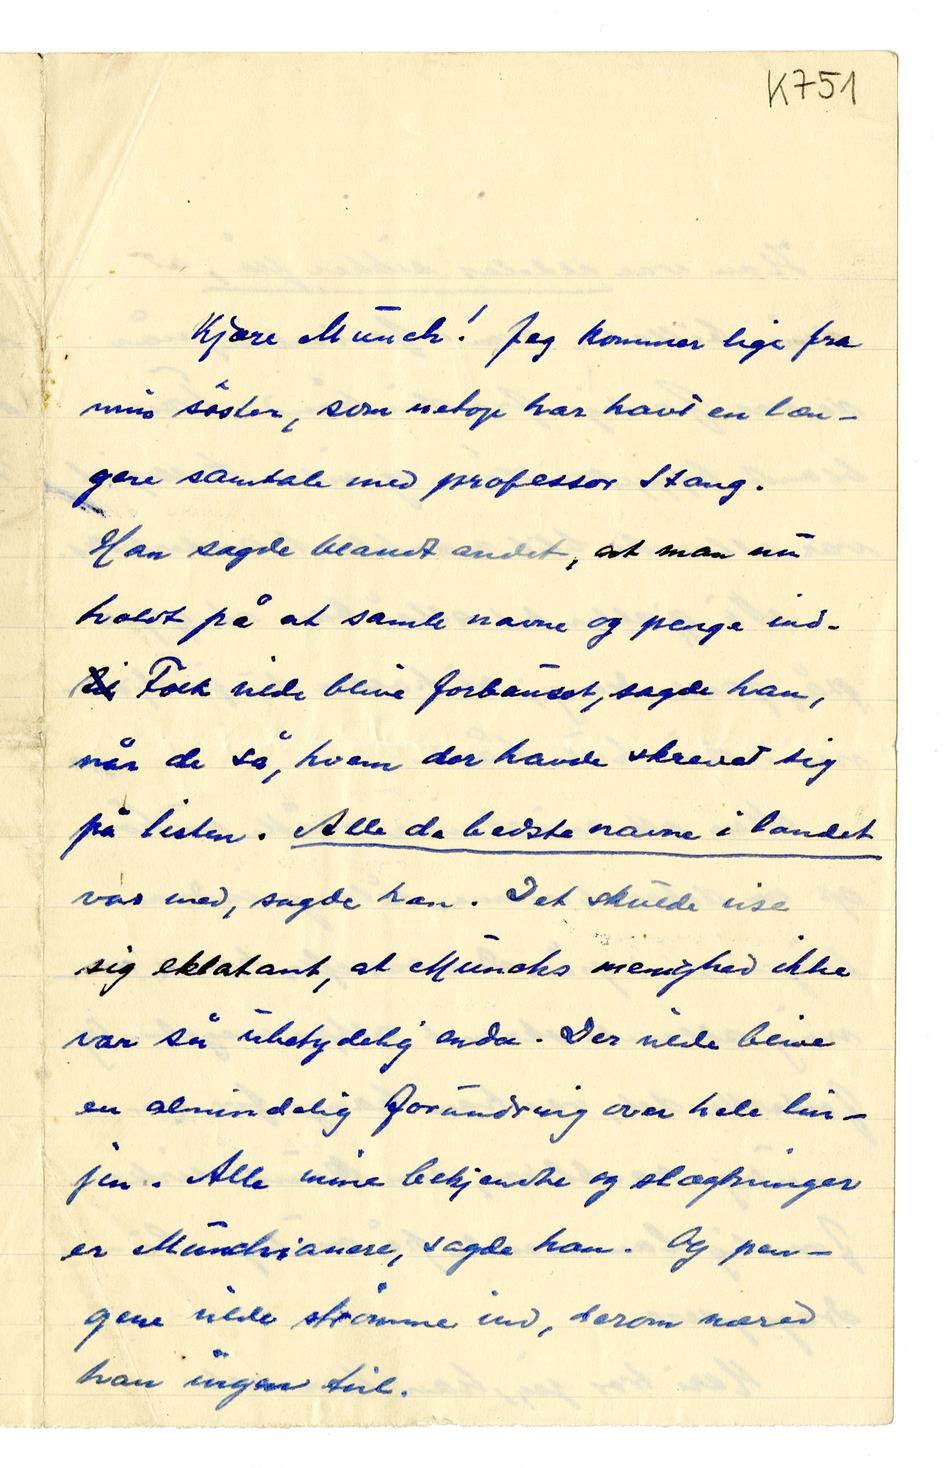 K751
Kjære Munch! Jeg kommer lige fra
min söster, som netop har havt en læn-
gere samtale med professor Stang.
Han sagde blandt andet, at man nu
holdt på at samle navne og penge ind.
Folk vilde blive forbauset, sagde han,
når de så, hvem der havde skrevet sig
på listen. Alle de bedste navne i landet
var med, sagde han. Det skulde vise
sig eklatant, at Munchs menighed ikke
var så ubetydelig enda. Der vilde blive
en almindelig forundring over hele lin-
jen. Alle mine bekjendte og slægtninger
er Munchianere, sagde han. Og pen-
gene vilde strömme ind, derom næred
han ingen tvil.